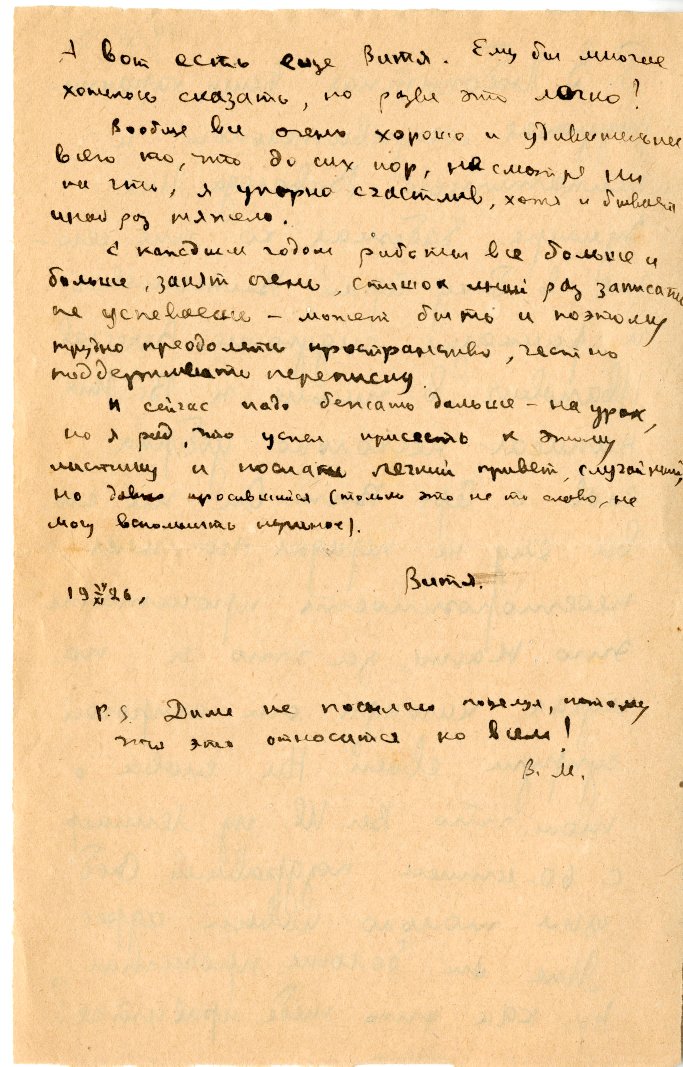 А вот есть еще Витя. Ему бы многое
хотелось сказать, но разве это легко?
Вообще все очень хорошо и удивительнее
всего то, что до сих пор, несмотря ни
на что, я упорно счастлив, хотя и бывает
иной раз тяжело.
С каждым годом работы все больше и
больше, занят очень, стишок иной раз записать
не успеваешь – может быть и поэтому
трудно преодолеть пространство, честно
поддерживать переписку.
И сейчас надо бежать дальше – на урок,
но я рад, что успел присесть к этому
листику и послать легкий привет, случайный,
но давно просившийся (только это не то слово, не
могу вспомнить нужное).
Витя.
19 XI 26.
P.S. Диме не посылаю поцелуя, потому
что это относится ко всем!
В. М.